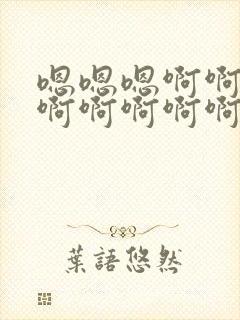 嗯嗯嗯啊啊
啊啊啊啊啊
葉語悠然